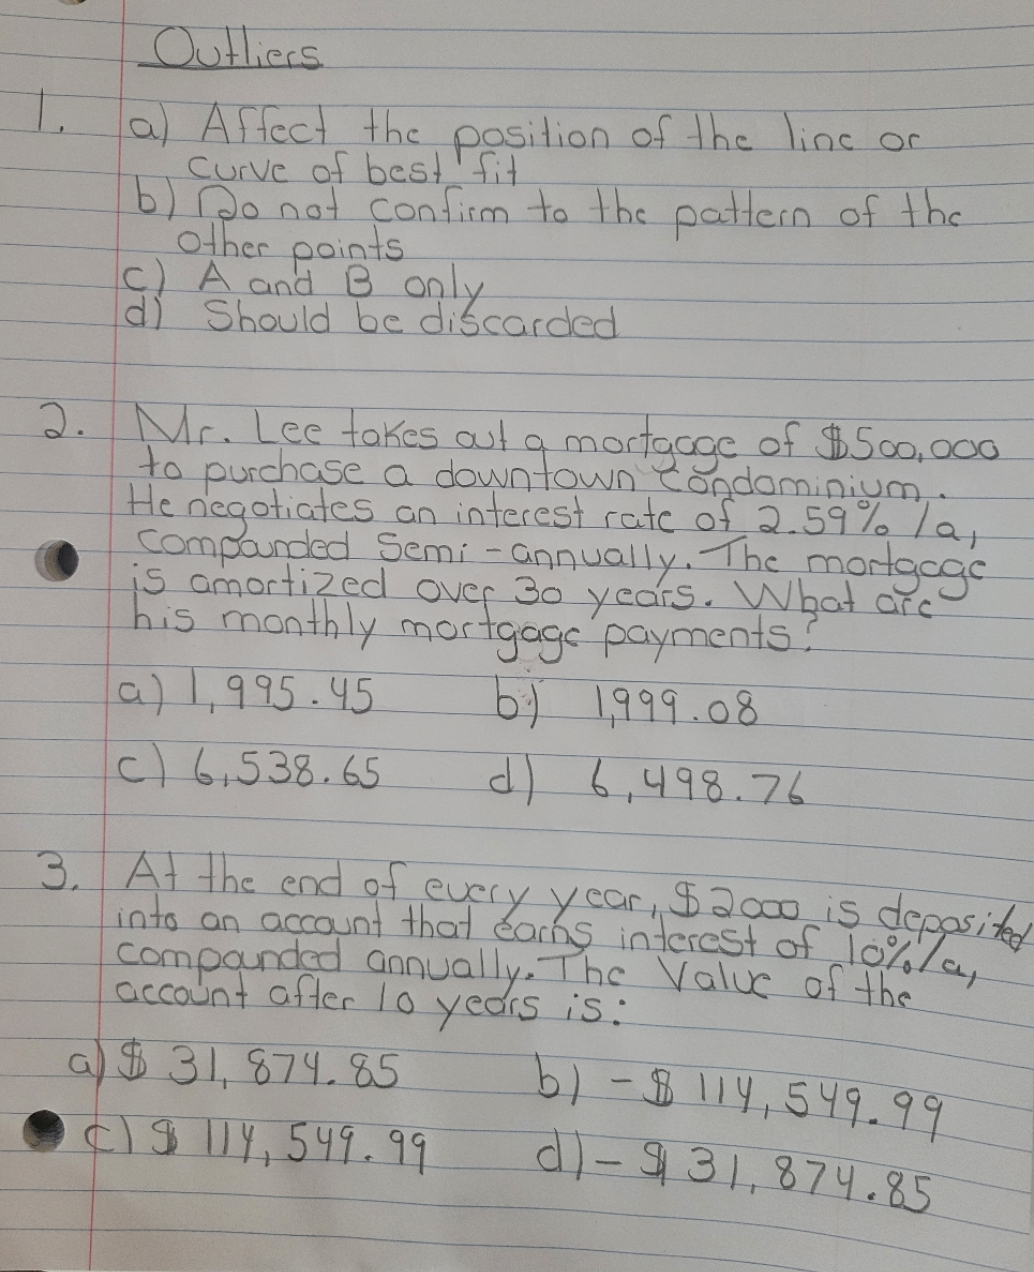 Outliers
1. a) Affect the position of the line or
curve of best fit
b) Do not confirm to the pattern of the
other points
c) A and B only
d) Should be discarded
2. Mr. Lee takes out a mortgage of $500,000
to purchase a downtown condominium.
He negotiates an interest rate of 2.59% /a,
compounded semi-annually. The mortgage
is amortized over 30 years. What are
his monthly mortgage payments?
a) 1,995.45 b) 1,999.08
c) 6,538.65 d) 6,498.76
3. At the end of every year, $2000 is deposited
into an account that earns interest of 10%/a,
compounded annually. The Value of the
account after 10 years is:
a) $ 31, 874.85 b) - $ 114, 549.99
c) $ 114, 549.99 d) - $ 31, 874.85